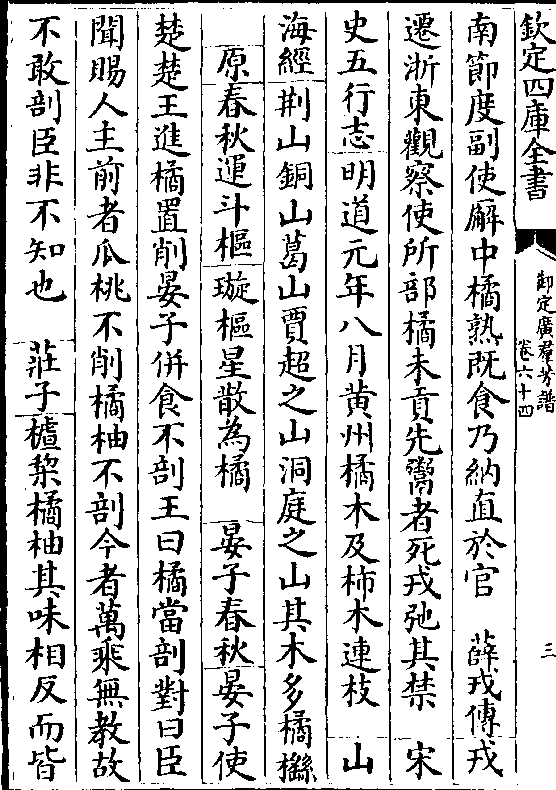 欽定四庫全書
御定廣羣芳譜
卷六十四
三
南節度副使廨中橘熟既食乃納直於官　薛戎傳戎
遷浙東觀察使所部橘未貢先鬻者死戎弛其禁　宋
史五行志明道元年八月黄州橘木及柿木連枝　山
海經荆山銅山葛山賈超之山洞庭之山其木多橘櫾
原春秋運斗樞璇樞星散為橘　晏子春秋晏子使
楚楚王進橘置削晏子併食不剖王曰橘當剖對曰臣
聞賜人主前者瓜桃不削橘柚不剖今者萬乘無教故
不敢剖臣非不知也　莊子樝棃橘柚其味相反而皆